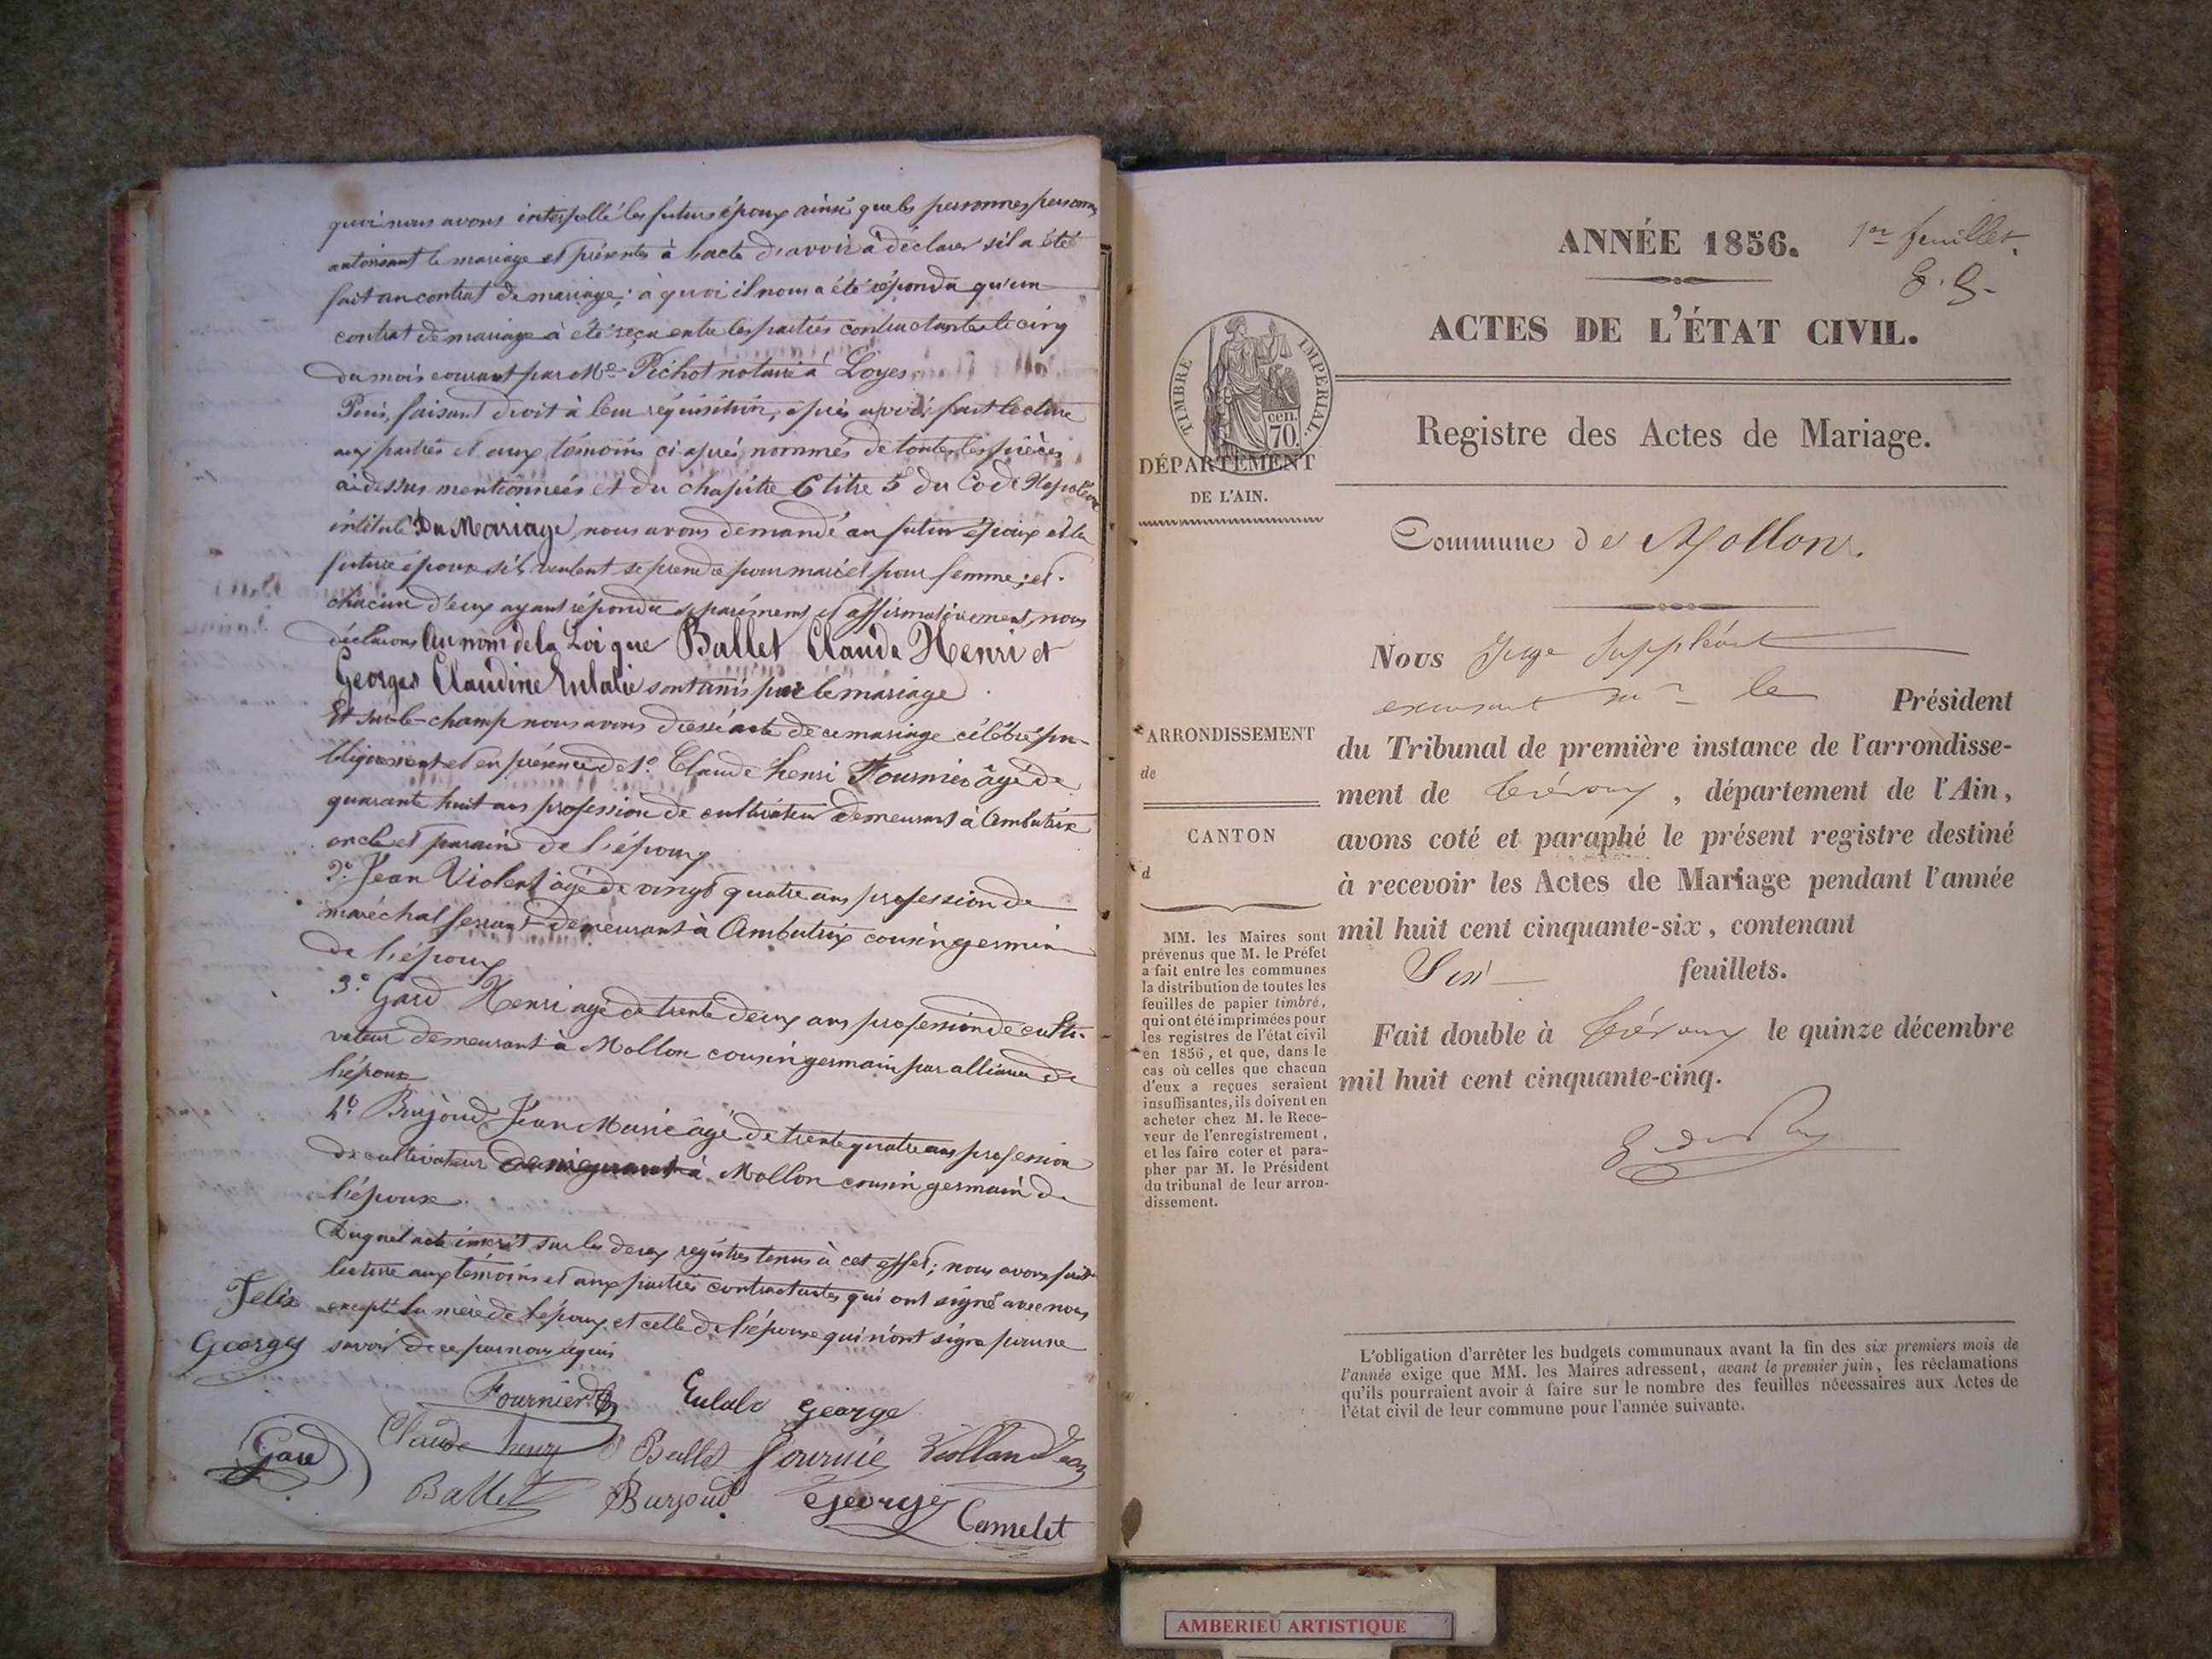 quoi nous avons interpellé les futurs époux ainsi que les personnes
autorisant le mariage et présentes à l'acte d'avoir à déclarer s'il a été
fait un contrat de mariage ; à quoi il nous a été répondu qu'un
contrat de mariage à été reçu entre les parties contractantes le cinq
du mois courant par Me Pichot notaire à Loyes.
Puis, faisant droit à leur réquisition, après avoir fait lecture
aux parties et aux témoins ci-après nommés de toutes les pièces
ci-dessus mentionnées et du chapitre 6 titre 5 du Code Napoléon
intitulé Du Mariage, nous avons demandé au futur époux et la
future épouse s'ils veulent se prendre pour mari et pour femme ; et
chacun d'eux ayant répondu séparément et affirmativement, nous
déclarons Au nom de la Loi que Ballet Claude Henri et
Georges Claudine Eulalie sont unis par le mariage
Et sur-le-champ nous avons dressé acte de ce mariage célébré pu-
bliquement et en présence de 1o. Claude henri Fournier âgé de
quarante huit ans profession de cultivateur demeurant à Ambutrix
oncle et parain de l'époux
2o. Jean Violent âgé de vingt quatre ans profession de
maréchal ferrant demeurant à Ambutrix cousin germain
de l'époux
3o. Gard Henri agé de trente deux ans profession de culti-
vateur demeurant à Mollon cousin germain par alliance de
l'épouse
4o. Burjoud Jean Marie âgé de trente quatre ans profession
de cultivateur demeurant à Mollon cousin germain de
l'épouse.
Duquel acte inscrit sur les deux registres tenus à cet effet ; nous avons fait
lecture aux témoins et aux parties contractantes qui ont signé avec nous
excepté la mère de l'époux et celle de l'épouse qui n'ont signé pour ne
savoir de ce par nous requis
Felix
Georges
Fournier
Eulale George
Claude henry
Ballet Fournie Viollan Jean
Gard
Ballet Burjoud George Camelet
ANNÉE 1856.
1er feuillet.
ACTES DE L'ÉTAT CIVIL.
TIMBRE IMPERIAL.
cen.
70.
Registre des Actes de Mariage.
DÉPARTEMENT
DE L'AIN.
Commune de Mollon.
Nous Juge Suppléant
excusant Mr le Président
du Tribunal de première instance de l'arrondisse-
ment de Trévoux, département de l'Ain,
avons coté et paraphé le présent registre destiné
à recevoir les Actes de Mariage pendant l'année
mil huit cent cinquante-six, contenant
Six feuillets.
Fait double à Trévoux le quinze décembre
mil huit cent cinquante-cinq.
ARRONDISSEMENT
de
CANTON
d
MM. les Maires sont
prévenus que M. le Préfet
a fait entre les communes
la distribution de toutes les
feuilles de papier timbré,
qui ont été imprimées pour
les registres de l'état civil
en 1856, et que, dans le
cas où celles que chacun
d'eux a reçues seraient
insuffisantes, ils doivent en
acheter chez M. le Rece-
veur de l'enregistrement,
et les faire coter et para-
pher par M. le Président
du tribunal de leur arron-
dissement.
L'obligation d'arrêter les budgets communaux avant la fin des six premiers mois de
l'année exige que MM. les Maires adressent, avant le premier juin, les réclamations
qu'ils pourraient avoir à faire sur le nombre des feuilles nécessaires aux Actes de
l'état civil de leur commune pour l'année suivante.
AMBERIEU ARTISTIQUE